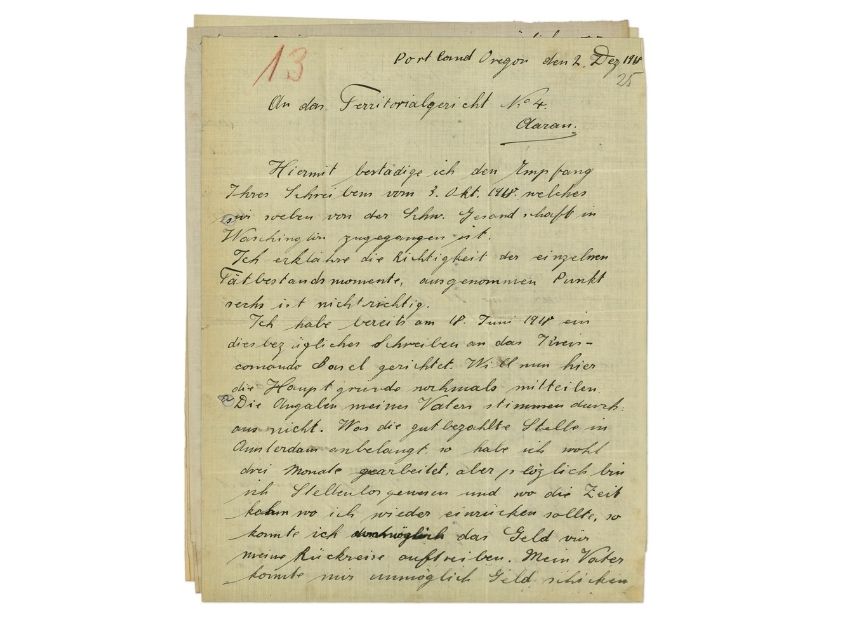 13
Portland Oregon den 2. Dez 1918
25
An das Territorialgericht No 4.
Aarau.
Hiermit bestädige ich den Empfang
Ihres Schreibens vom 3. Okt. 1918. welches
mir soeben von der Schw. Gesandschaft in
Waschington zugegangen ist.
Ich erklähre die Richtigkeit der einzelnen
Tatbestandsmomente, ausgenommen Punkt
sechs ist nicht richtig.
Ich habe bereits am 18. Juni 1918 ein
diesbezügliches Schreiben an das Kreis-
comando Basel gerichtet. Will nun hier
die Hauptgründe nochmals mitteilen
Die Angaben meines Vaters stimmen durch-
aus nicht. Was die gutbezahlte Stelle in
Amsterdam anbelangt so habe ich wohl
drei Monate gearbeitet, aber plözlich bin
ich Stellenlos gewesen und wo die Zeit
kahm wo ich wieder einrücken sollte, so
konnte ich das Geld
meine Rückreise auftreiben. Mein Vater
konnte mir unmöglich Geld schicken